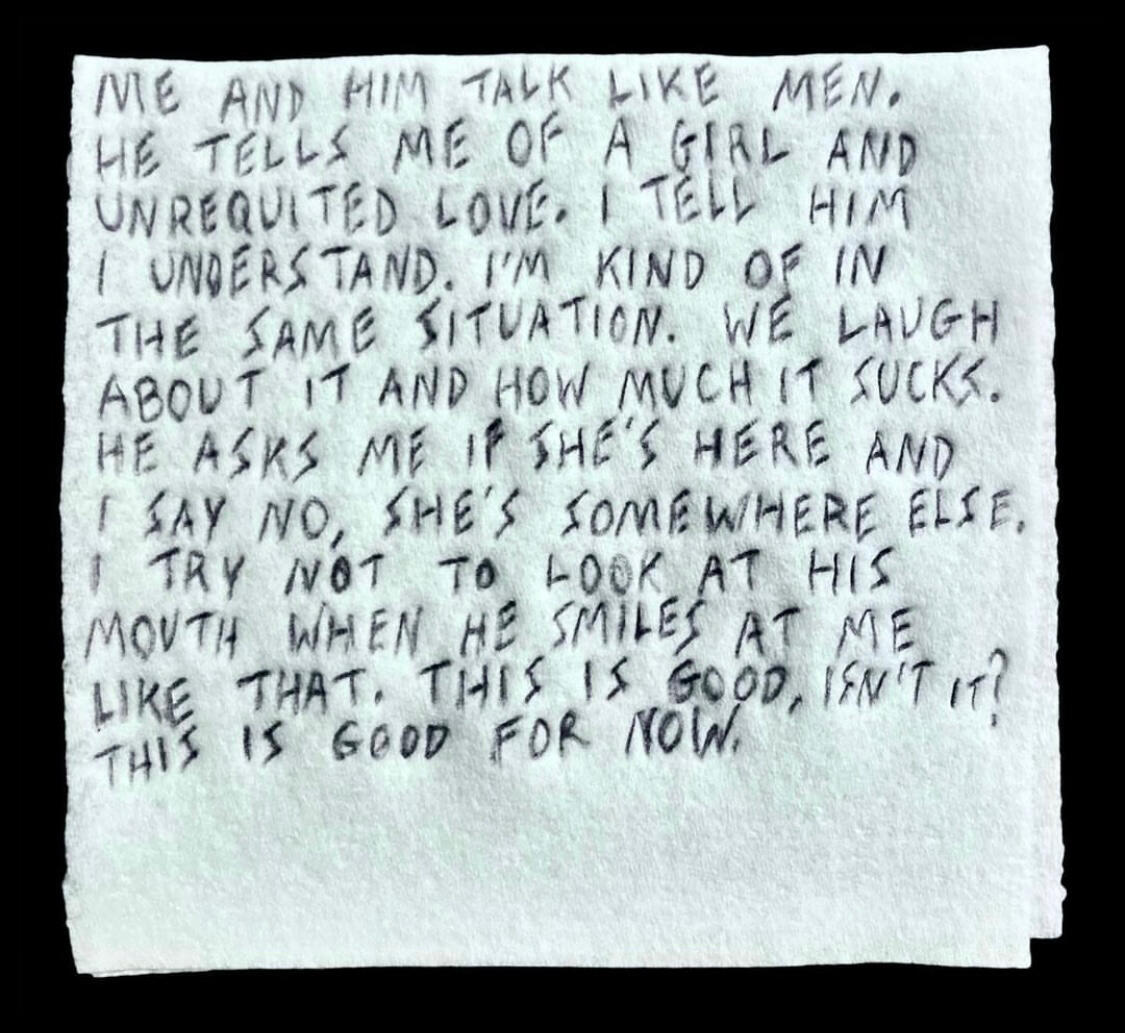 ME AND HIM TALK LIKE MEN.
HE TELLS ME OF A GIRL AND
UNREQUITED LOVE. I TELL HIM
I UNDERSTAND. I'M KIND OF IN
THE SAME SITUATION. WE LAUGH
ABOUT IT AND HOW MUCH IT SUCKS.
HE ASKS ME IF SHE'S HERE AND
I SAY NO, SHE'S SOMEWHERE ELSE.
I TRY NOT TO LOOK AT HIS
MOUTH WHEN HE SMILES AT ME
LIKE THAT. THIS IS GOOD, ISN'T IT?
THIS IS GOOD FOR NOW.